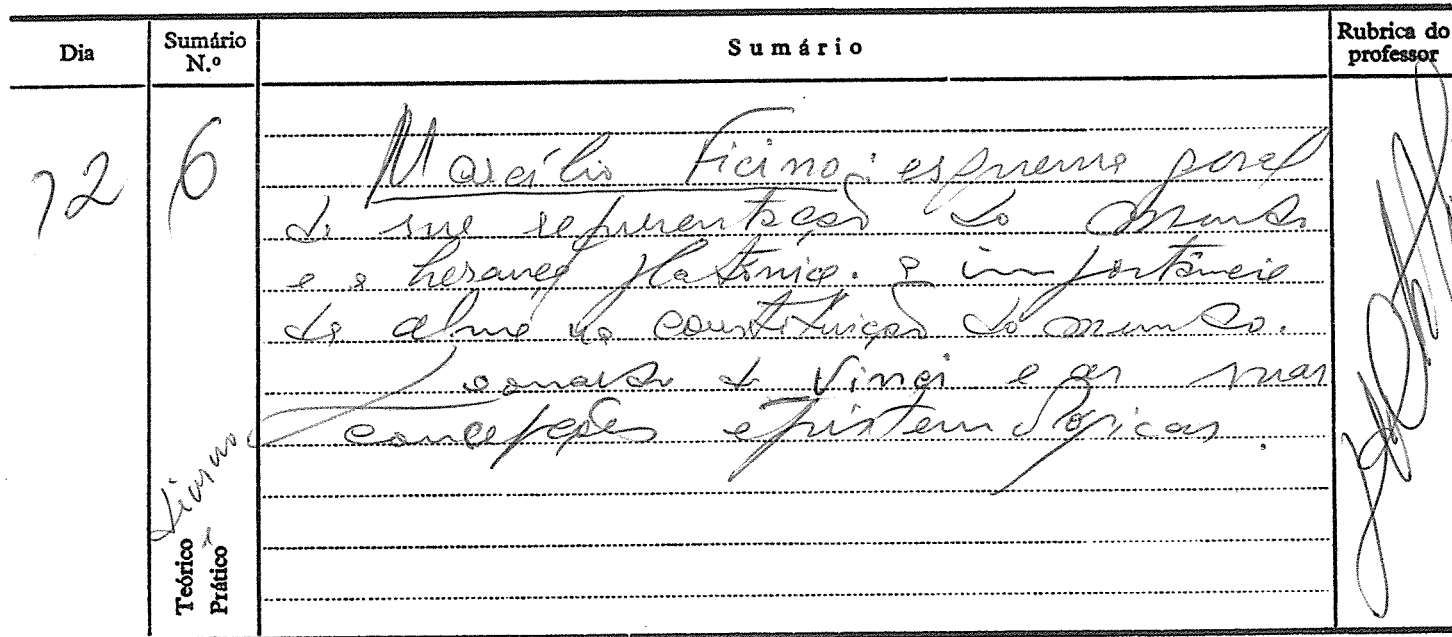 Dia
Sumário N.º
Sumário
Rubrica do professor
12
6
Marcílio Ficino: esquema geral
da sua representação do mundo
e a herança platónica. a importância
da alma na constituição do mundo.
Leonardo da Vinci e as suas
concepções epistemológicas.
Teórico
Prático